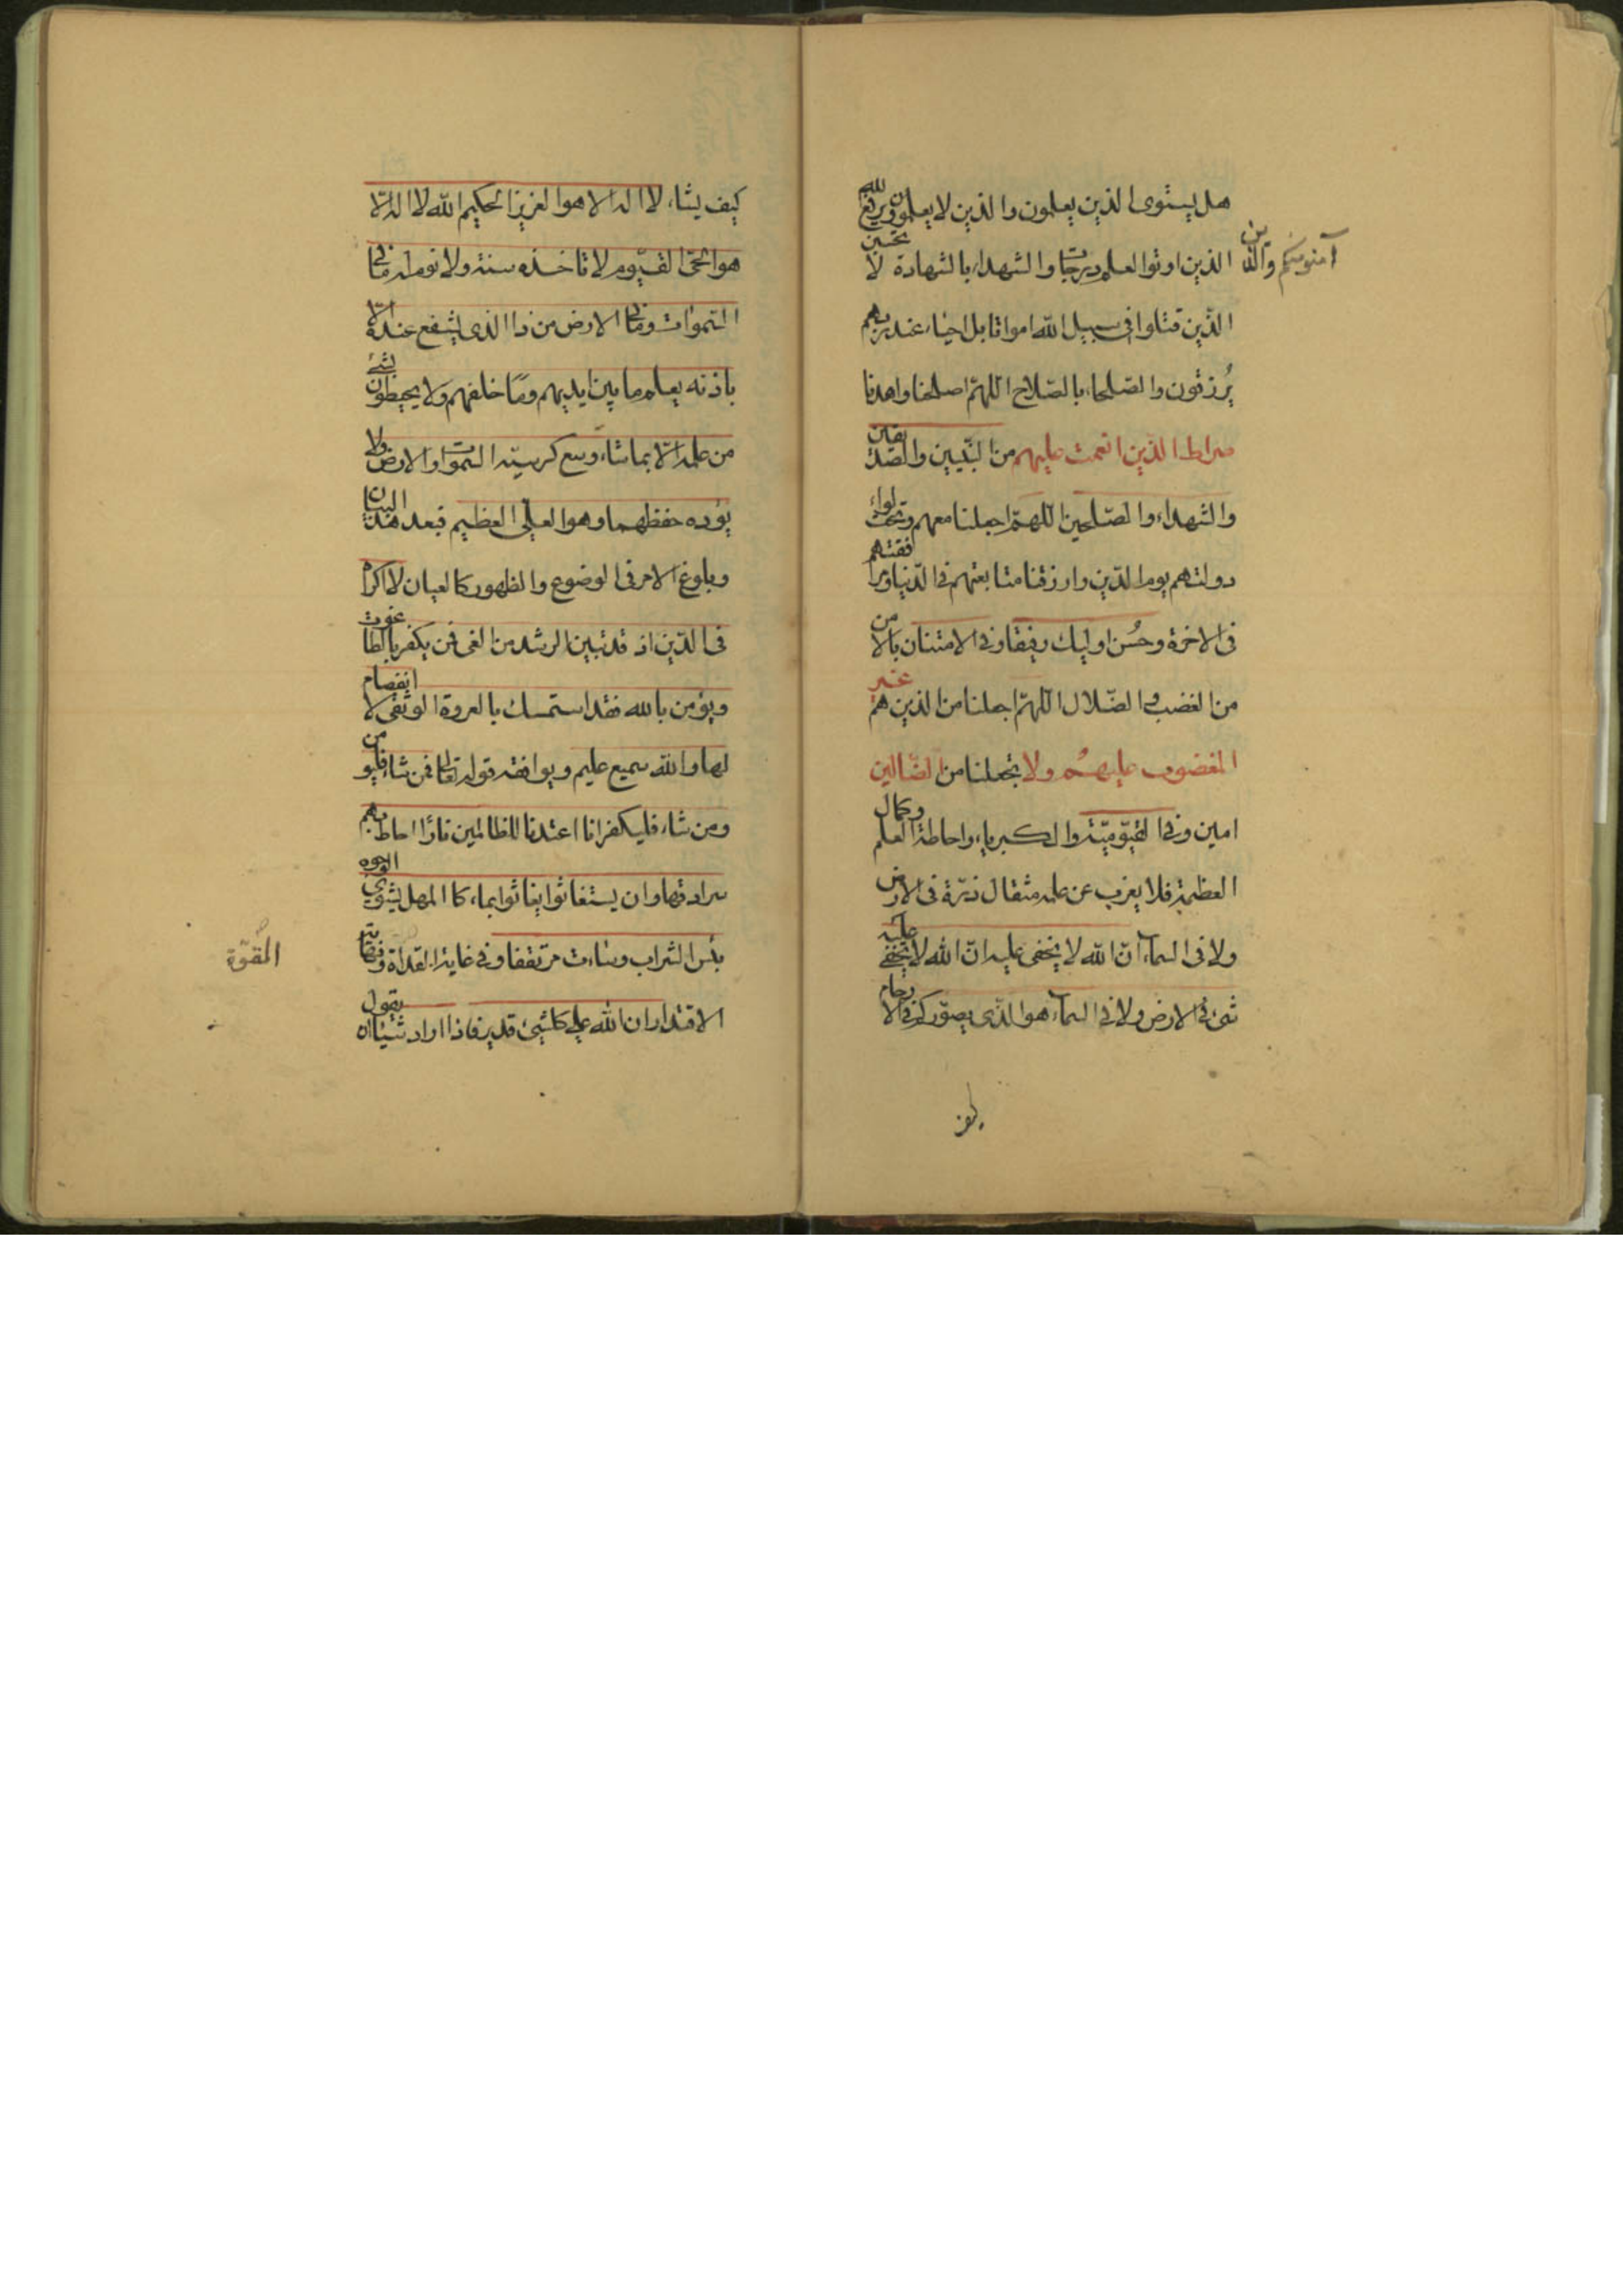 هل يستوى الذين يعلمون والذين لا يعلمون ويرفع الله
آمنو منكم والذين
الذين اوتوا العلم درجات والشهداء بالشهادة لا تحسبن
الذين قتلوا فى سبيل الله امواتا بل احياء عند ربهم
يُرزقون والصلحاء بالصلاح اللهمّ اصلحنا واهدنا
صراط الذين انعمت عليهم من النبيين والصديقين
والشهداء والصلحين اللهمّ اجعلنا معهم وتحت لواء
دولتهم يوم الدين وارزقنا متابعتهم فى الدنيا ومرافقتهم
فى الاخرة وحُسن اوليك رفيقا وفى الامتنان بالامن
من الغضب والضلال اللهمّ اجعلنا من الذين هم غير
المغضوب عليهم ولا تجعلنا من الضالين
امين وفى القيّوميّة والكبرياء واحاطة العلم وكمال
العظمة فلا يعزب عن علمه مثقال ذرّة فى الارض
ولا فى السماء انّ الله لا يخفى عليه انّ الله لا يخفى عليه
شىء فى الارض ولا فى السماء هو الذى يصوّركم فى الارحام
كيف
كيف يشاء لا اله الا هو العزيز الحكيم الله لا اله الّا
هو الحىّ القيّوم لا تاخذه سنة ولا نوم له ما فى
السموات وما فى الارض من ذا الذى يشفع عنده الّا
باذنه يعلم ما بين ايديهم وما خلفهم ولا يحيطون بشئ
من علمه الّا بما شاء وسع كرسيّه السموات والارض ولا
يؤده حفظهما وهو العلى العظيم فبعد هذا البيان
وبلوغ الامر فى الوضوع والظهور كالعيان لا اكراه
فى الدّين اذ قد تبين الرشد من الغى فمن يكفر بالطاغوت
ويؤمن بالله فقد استمسك بالعروة الوثقى لا انفصام
لها والله سميع عليم ويوافقه قوله تعالى فمن شاء فليومن
ومن شاء فليكفر انا اعتدنا للظالمين نارًا احاط بهم
سرادقها وان يستغاثوا يغاثوا بماء كالمهل يشوى الوجوه
بئس الشراب وساءت مرتفقا وفى غاية القدرة ونهاية
القوّة
الاقتدار ان الله على كل شئ قدير فاذا اراد شيئا ان يقول